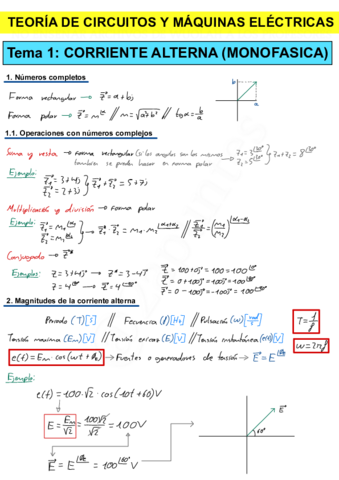 TEORÍA DE CIRCUITOS Y MÁQUINAS ELÉCTRICAS
Tema 1: CORRIENTE ALTERNA (MONOFASICA)
1. Números completos
Forma rectangular → z⃗ = a + bj
Forma polar → z⃗ = m^α // m = √a²+b² // tg α = b/a
b
a
1.1. Operaciones con números complejos
Suma y resta → Forma rectangular (Si los angulos son los mismos
también se puede hacer en forma polar
Ejemplo:
z⃗1 = 3+4j
z⃗2 = 2+3j
z⃗1 + z⃗2 = 5+7j
Multiplicación y división → Forma polar
Ejemplo:
z⃗1 = m1^α1
z⃗2 = m2^α2
z⃗1 · z⃗2 = m1 · m2^(α1+α2) // z⃗1/z⃗2 = (m1/m2)^(α1-α2)
Conjugado → z⃗*
Ejemplos:
z = 3+4j → z* = 3-4j
2. Magnitudes de la corriente alterna
Periodo (T)[s] // Frecuencia (f)[Hz] // Pulsación (w)
T = 1/f
Tensión maxima (Em)[V] // Tensión eficaz (E)[V] // Tensión instantánea (e(t))[V]
w = 2πf
→ Fuentes o generadores de tensión →
Ejemplo:
e(t) = 100·√2 · cos (10t+60) V
E = Em/√2 = 100√2/√2 = 100 V
E⃗
60°